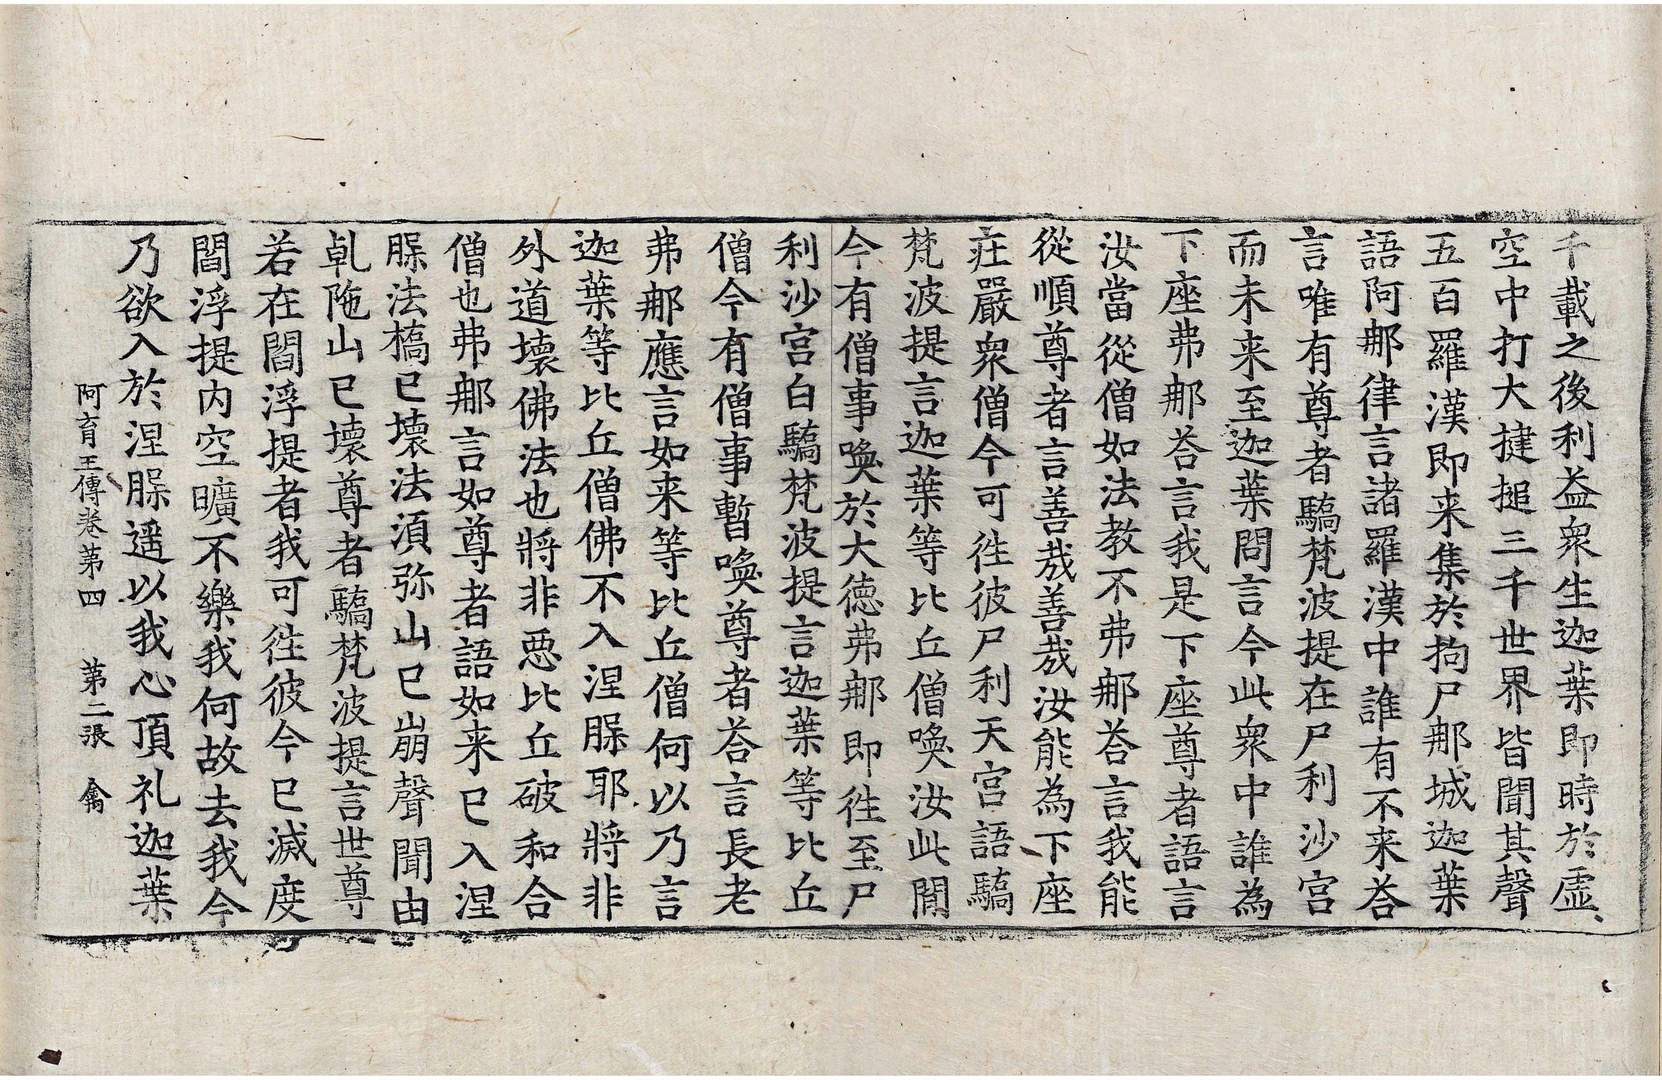 千載之後利益衆生迦葉即時於虛
空中打大揵搥三千世界皆聞其聲
五百羅漢即来集於拘尸那城迦葉
語阿那律言諸羅漢中誰有不来荅
言唯有尊者驕梵波提在尸利沙宮
而未来至迦葉問言今此衆中誰為
下座弗那荅言我是下座尊者語言
汝當從僧如法教不弗那荅言我能
從順尊者言善㢤善㢤汝能為下座
莊嚴衆僧今可往彼尸利天宮語驕
梵波提言迦葉等比丘僧喚汝此閒
今有僧事喚於大德弗那即往至尸
利沙宮白驕梵波提言迦葉等比丘
僧今有僧事暫喚尊者荅言長老
弗那應言如来等比丘僧何以乃言
迦葉等比丘僧佛不入涅槃耶將非
外道壞佛法也將非惡比丘破和合
僧也弗那言如尊者語如来已入涅
槃法橋已壞法湏弥山已崩聲聞由
乹陁山已壞尊者驕梵波提言世尊
若在閻浮提者我可往彼今已滅度
閻浮提内空曠不樂我何故去我今
乃欲入於涅槃遥以我心頂礼迦葉
阿育王傳卷第四 第二張 禽